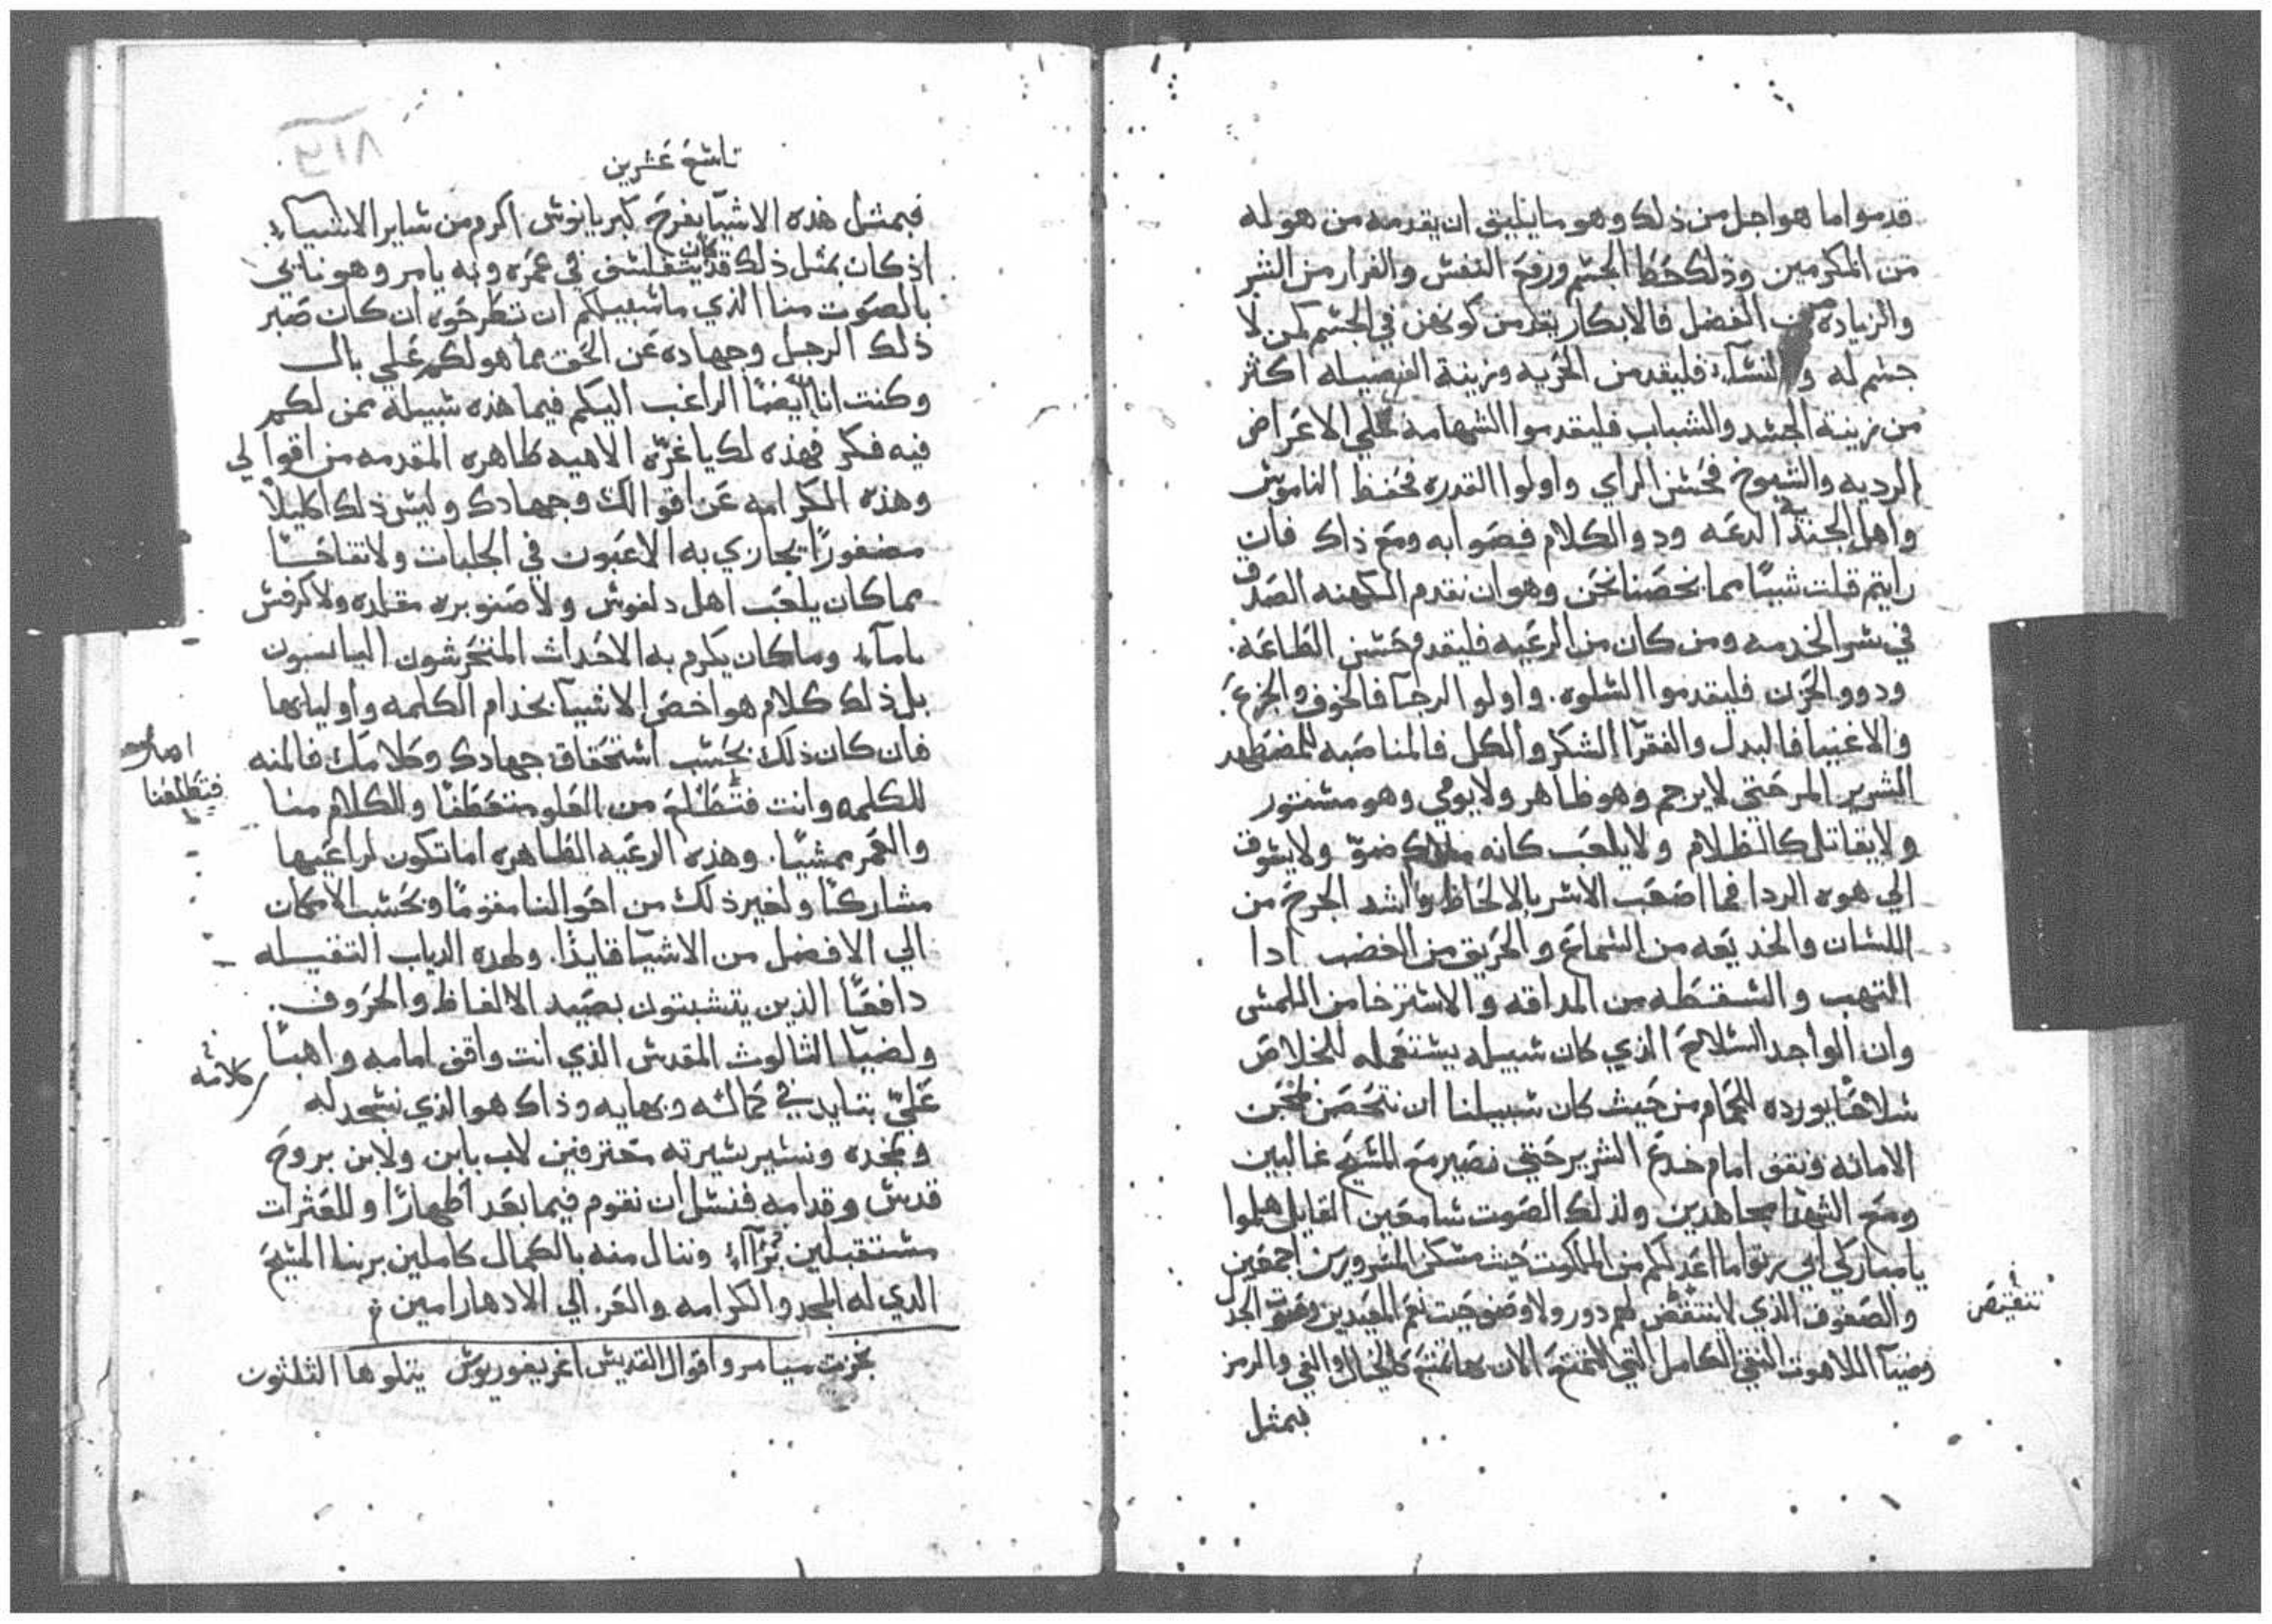 قدموا ما هو اجل من ذلك وهو ما يليق ان يقدمه من هو له
من المكرمين وذلك حط الجسم وروح النفس والفرار من الشر
والزياده من الفضل فالابكار يقدمن كونهن في الجسم لمن لا
جسم له والنسآء فليقدمن الحريه وزينة الفضيله اكثر
من زينة الجسد والشباب فليقدموا الشهامه علي الاعراض
الرديه والشيوخ فحسن الراي واولوا القدره فحفظ الناموس
واهل الجند الدعه ودو والكلام فصوابه ومع ذاك فان
رايتم قلت شيًا مما نحصنا نحن وهو ان نقدم الكهنه الصدق
في سر الخدمه ومن كان من الرعيه فليقدم حسن الطاعه.
ودوو الحزن فليقدموا السلوه. واولو الرجآ فالخوف والجزع.
والاغنيا فالبدل والفقرآ الشكر والكل فالمناصبه للمضطهد
الشرير المرحتي لا يرجم وهو ظاهر ولا يومي وهو مستور
ولا يقاتل كالظلام ولا يلعب كانه ملاك ضوّ ولا يسوق
الي هوه الردا فما اصعب الاسر بالالحاظ واشد الجرح من
اللسان والخديعه من السماع والحريق من الغضب ادا
التهب والسقطه من المداقه والاسترخا من اللمس
وان الواجد السلاح الذي كان سبيله يستعمله للخلاص
سلاحًا يورده الحمام من حيث كان سبيلنا ان نتحصن بمجن
الامانه ونقف امام خدع الشرير حتي نصير مع المسيح غالبين
ومع الشهدا مجاهدين ولذلك الصوت سامعين القايل هلموا
يا مباركي ابي رتوا ما اعد لكم من الملكوت حيث مسكن المسرورين اجمعين
والصفوف الذي لا تنتقض لهم دور ولا وضوحيت نغم العيدين وصوت الجدل
وضيآ اللاهوت النقي الكامل التي الان بها نتمتع كالخيال والفي والرمز
بمثل
تنتقيص
تاسع عشرين
٨١٩
فبمثل هذه الاشيآ يفرح كبريانوس اكرم من ساير الاشيآء
اذ كان بمثل ذلك قد كان يتفلسف في عمره وبه يامر وهو نايي
بالصوت منا الذي ما سبيلكم ان تطرحوه ان كان صبر
ذلك الرجل وجهاده عن الحق مما هو لكم علي بال
وكنت انا ايضًا الراغب اليكم فيما هذه سبيله ممن لكم
فيه فكر فهذه لك يا غرّه الاهيه طاهره المقدمه من اقوالي
وهذه الكرامه عن اقوالك وجهادك وليس ذلك اكليلاً
مضفورًا يجازي به اللاعبون في الحلبات ولا تفاحًا
مما كان يلعب اهل دلفوس ولا صنوبره مقلده ولا كرفس
نامآء وما كان يكرم به الاحداث المتخرشون اليانسون
بل ذلك كلام هو اخص الاشيآ بخدام الكلمه واوليايها
فان كان ذلك بحسب استحقاق جهادك وكلامك فالمنه
للكلمه وانت فتطلع من العلو متعطفًا والكلام منا
والعمر ممشيًا. وهذه الرعيه الطاهره اما تكون لراعيها
مشاركًا ولغير ذلك من احوالنا مقومًا وبحسب الامكان
الي الافضل من الاشيآ قايدًا. ولهده الدياب التقيله
دافعًا الذين يتشبتون بصيد الالفاظ والحروف.
ولضيآ الثالوث المقدس الذي انت واقف امامه واهبًا
عليّ بتايد في كماله وبهايه وذاك هو الذي نسجد له
ونمجده ونسير بسيرته معترفين لاب بابن ولابن بروح
قدس وقدامه فنسل ان نقوم فيما بعد اطهارًا وللعثرات
مستقبلين بُرآآء وننال منه بالكمال كاملين بربنا المسيح
الدي له المجد والكرامه والعز الي الادهار امين
نجزت ميامر واقوال القديس اغريغوريوس يتلوها الثلثون
فتطلعنا
كلامه